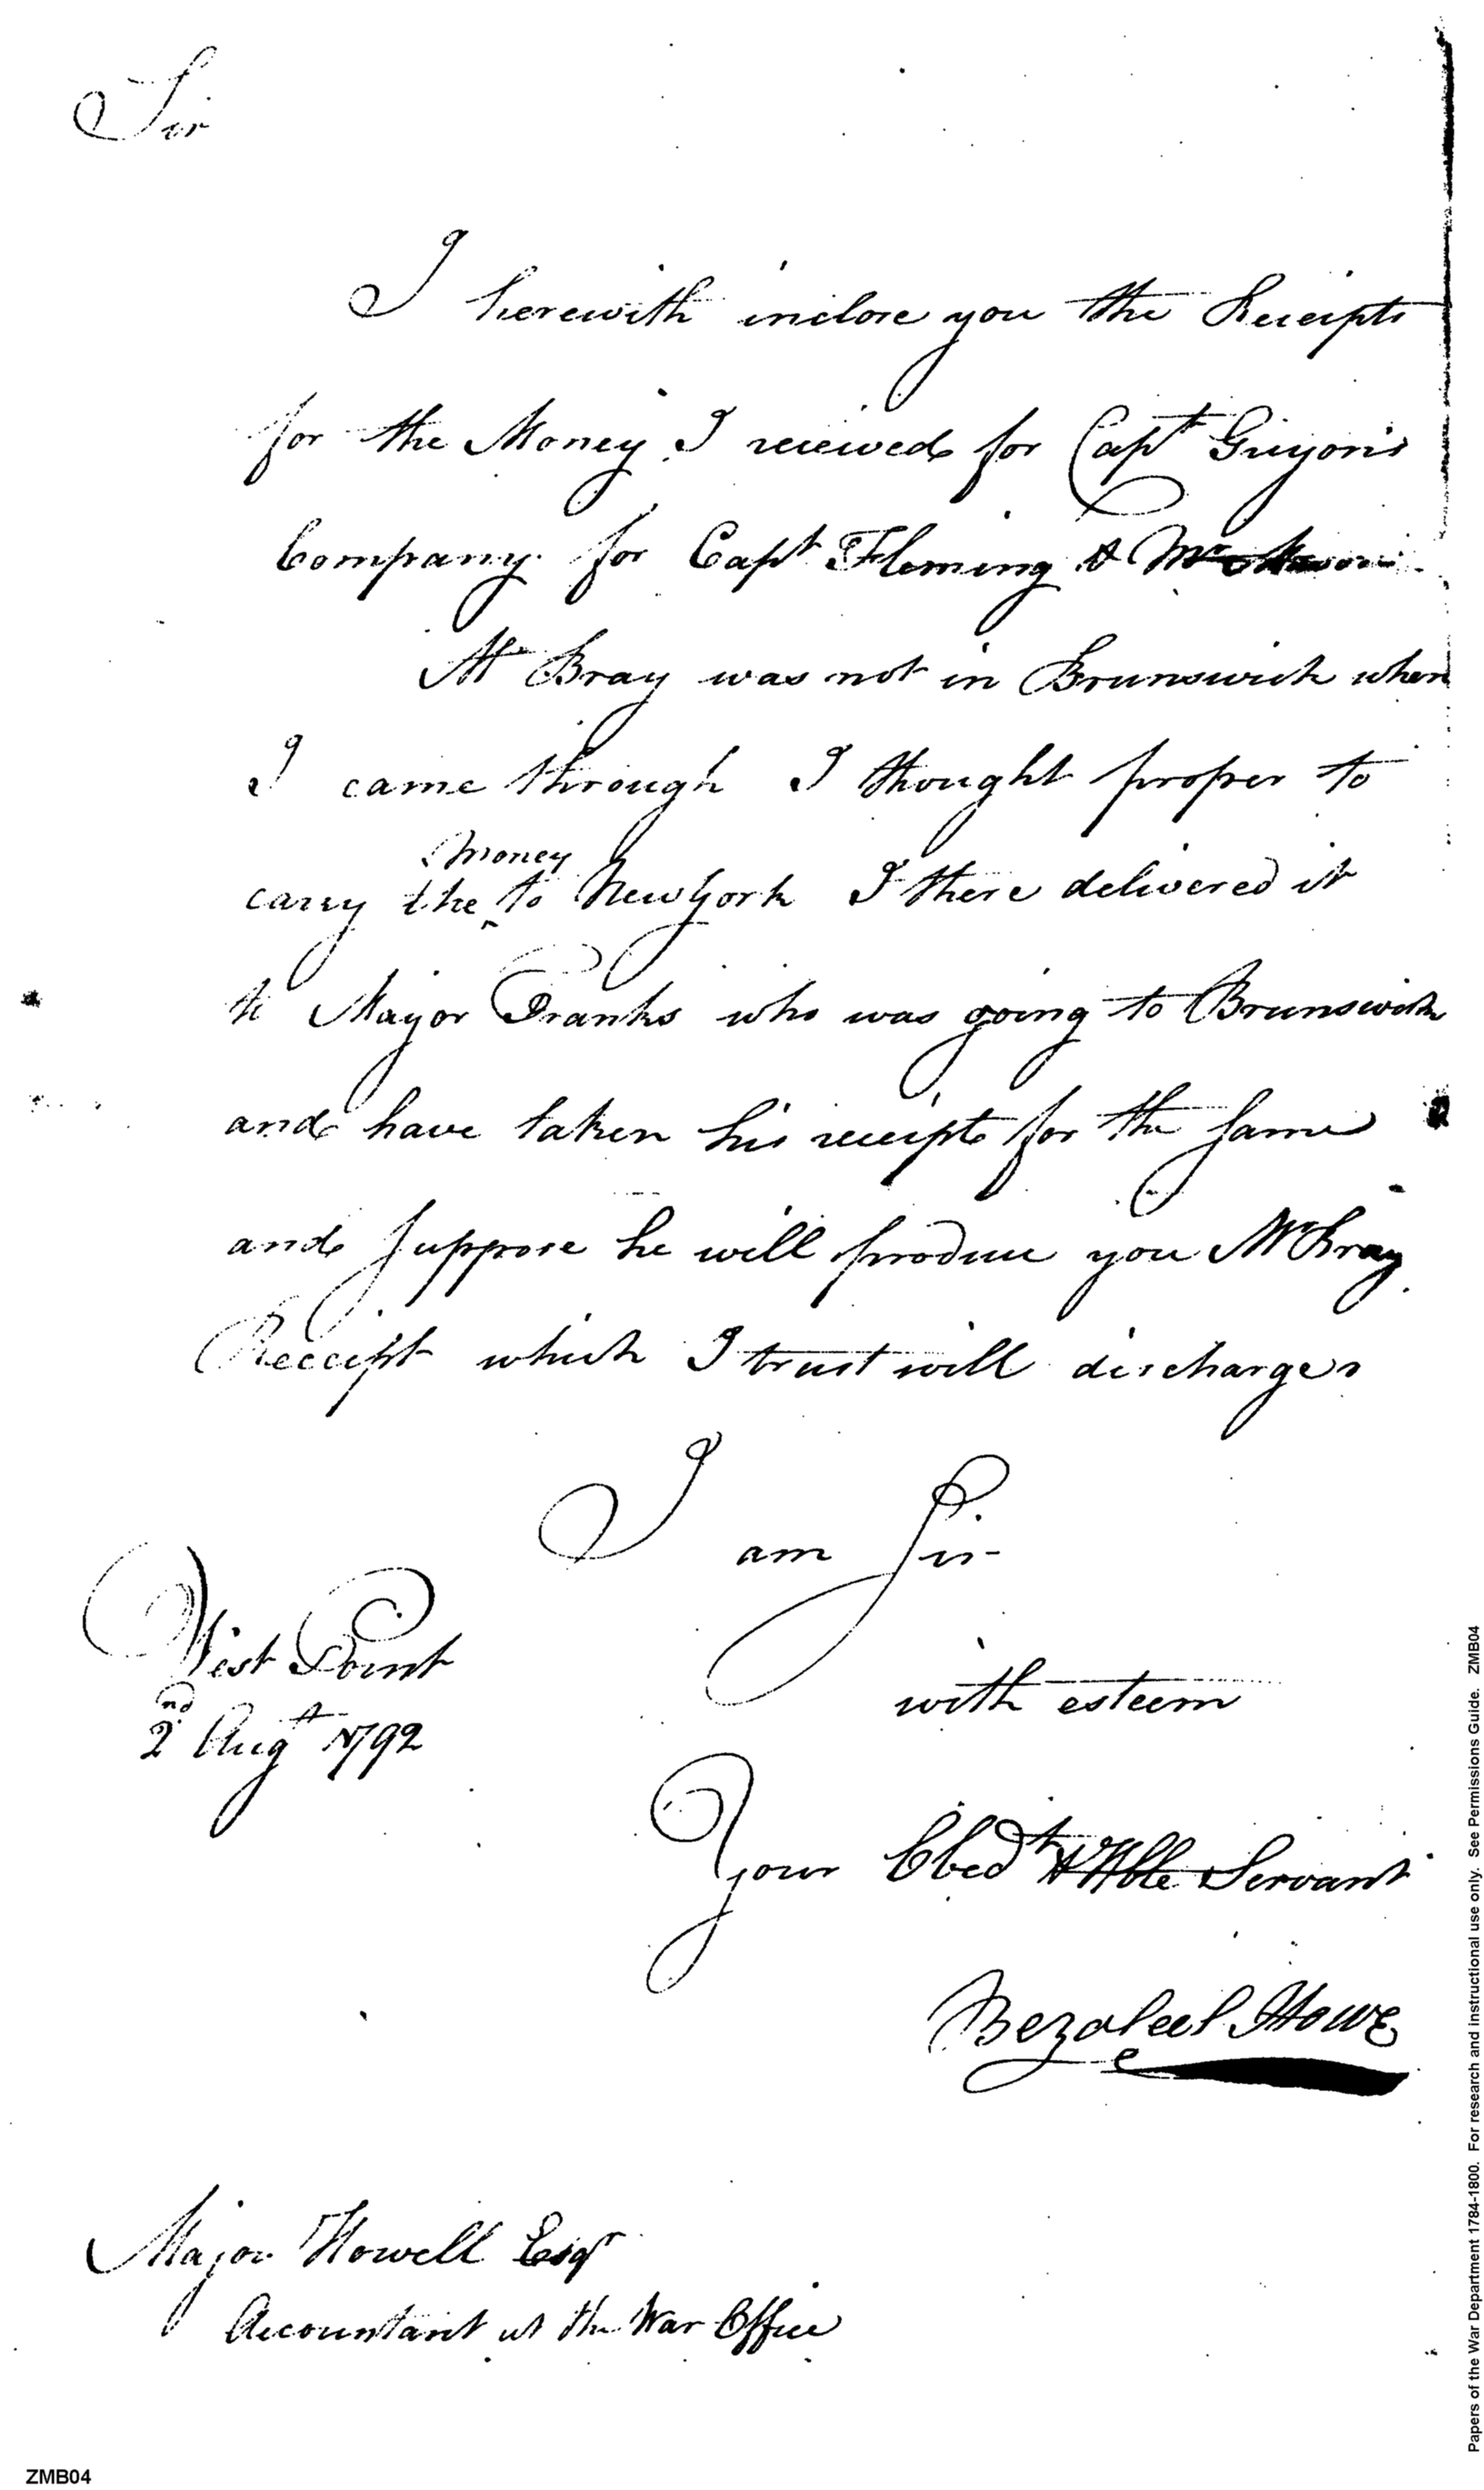 Sir
I herewith inclose you the Receipts
for the Money I reciewed for Capt Guyon's
Company. for Capt Fleming & Mr
Mr Bray was not in Brunswick when
I came through I thought proper to
money
carry the ^ to New York I there delivered it
to Mayor Pranks who was going to Brunswick
and have taken his receipts for the same
and suppose he will produce you Mr Bray
Receipt which I trust will discharge
I am Sir
West Point
2nd Augt 1792
with esteem
Your Obedt & Hble Servant
Bezaleel Howe
Major Howell Esqr
Accountant at the War Office
ZMB04
Papers of the War Department 1784-1800. For research and instructional use only. See Permissions Guide. ZMB04